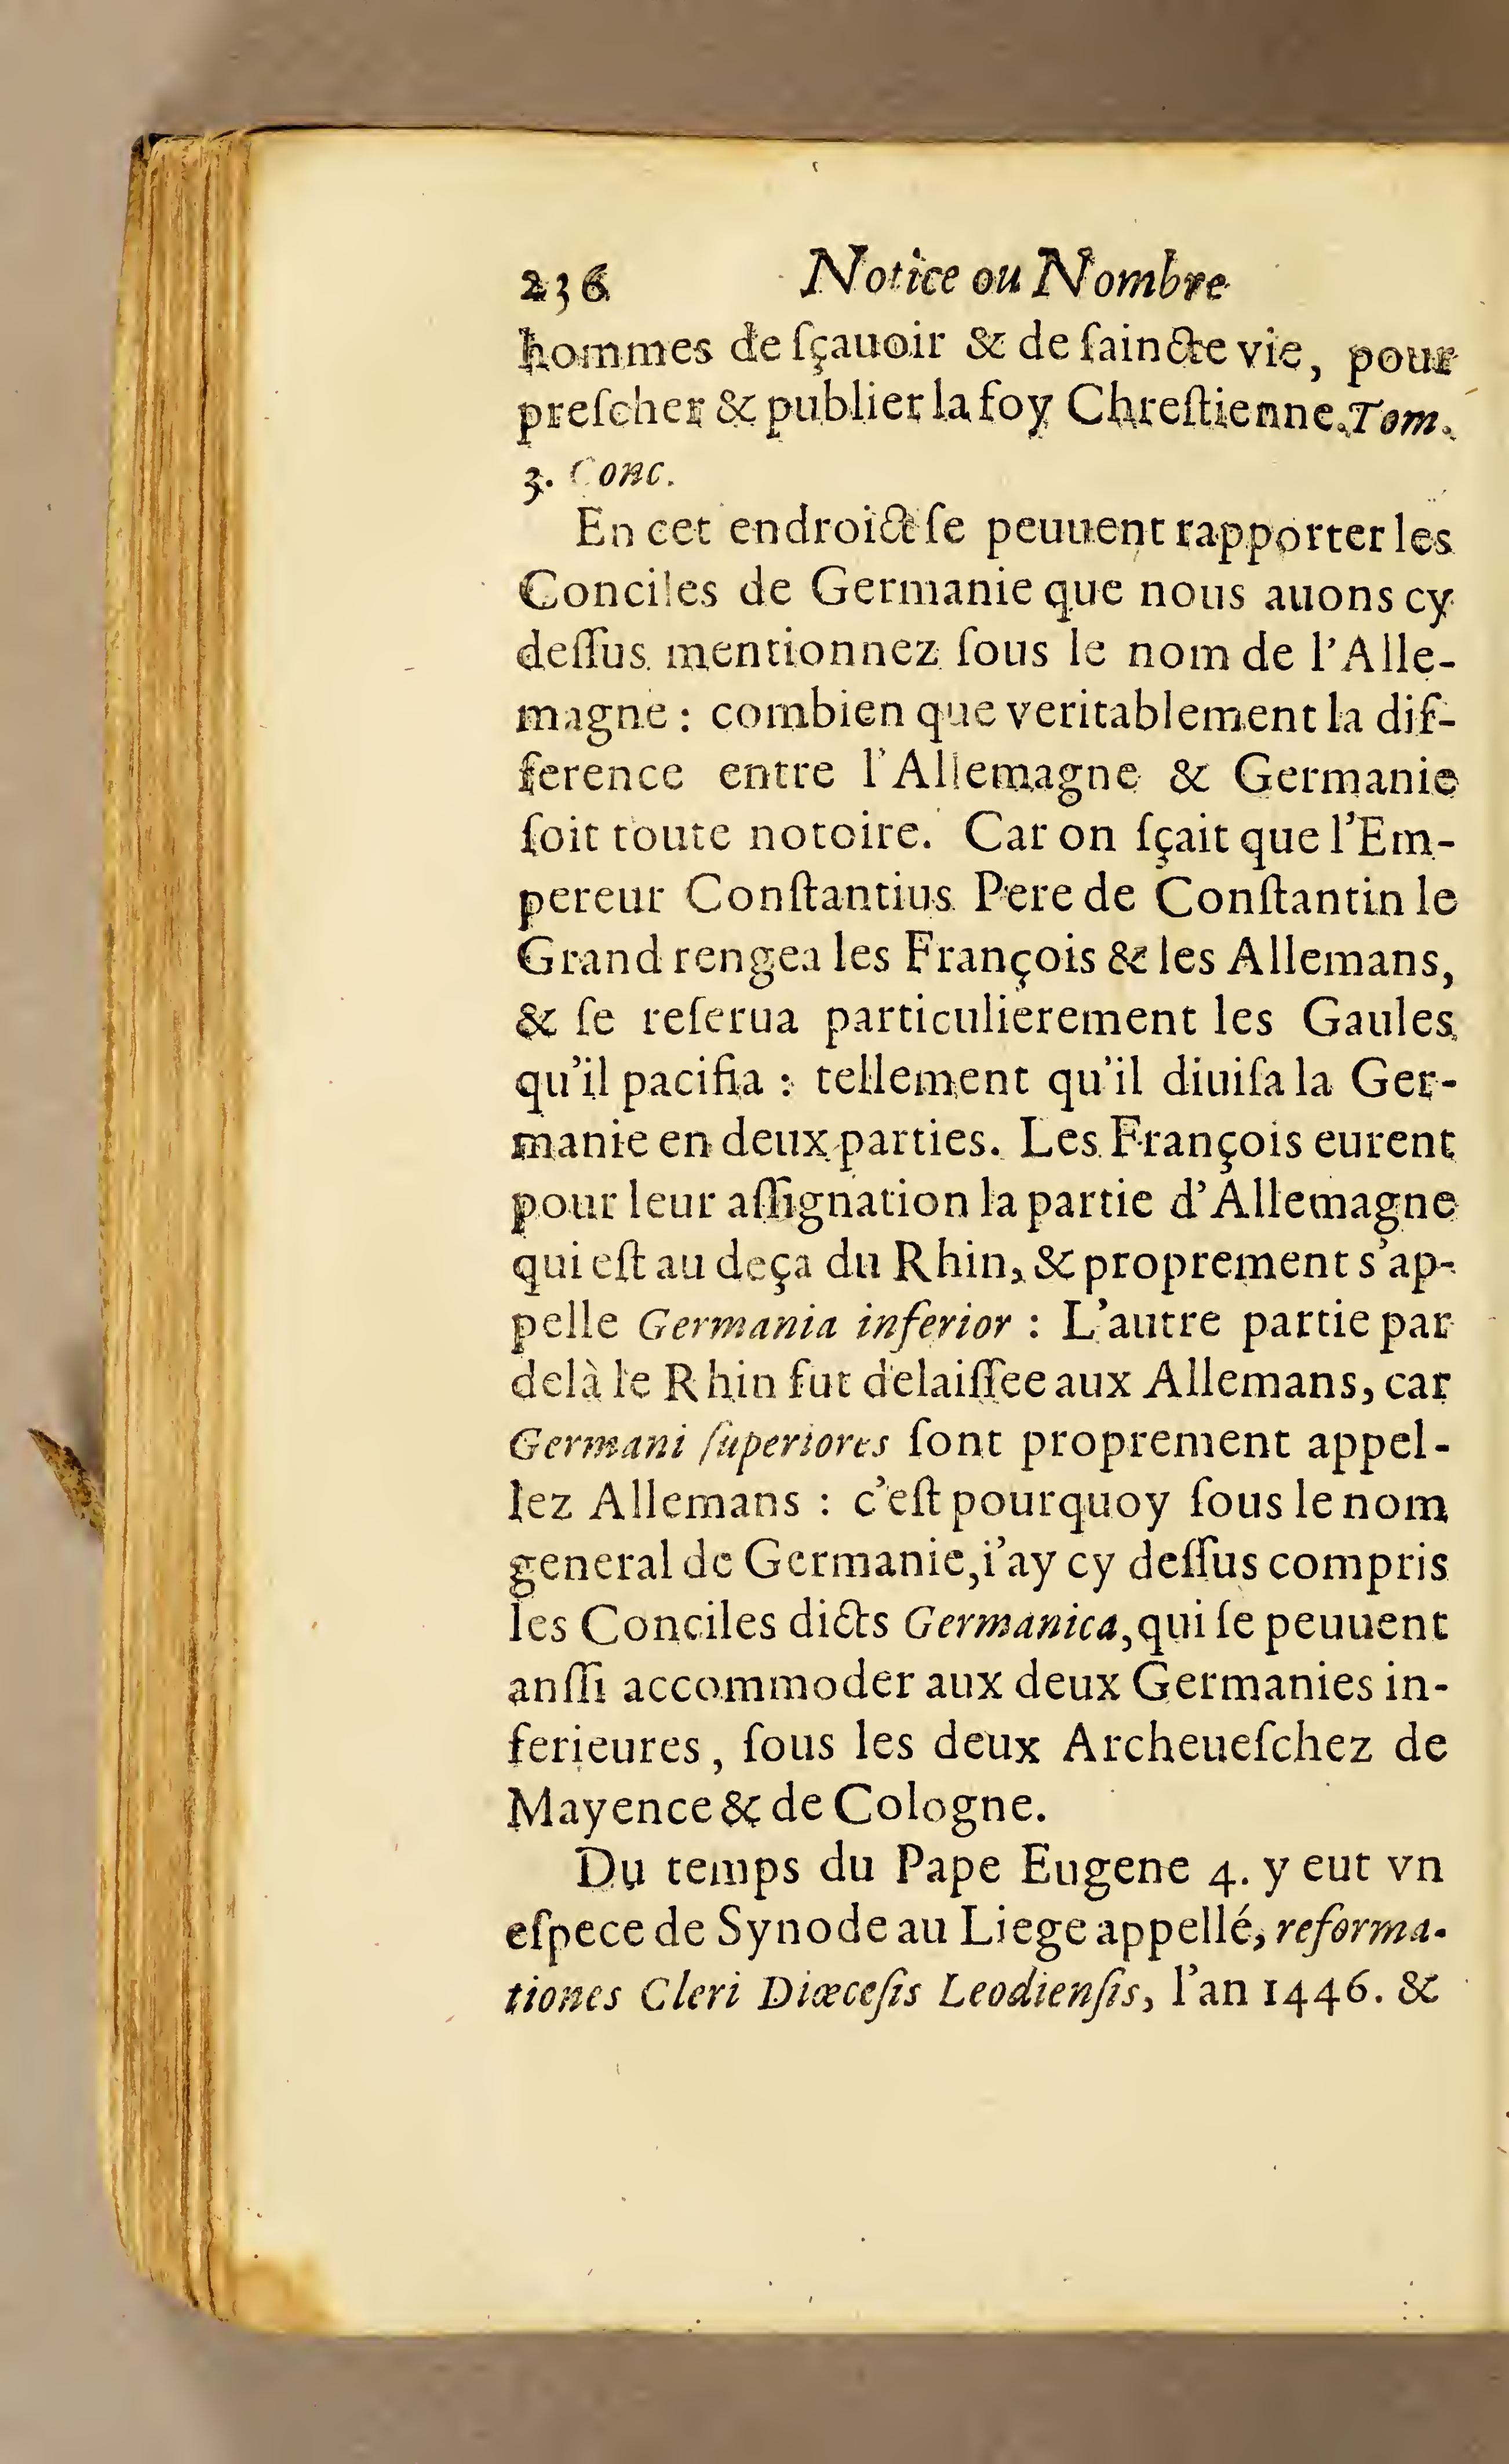 236 Notice ou Nombre
hommes de ſçauoir & de ſaincte vie, pour
preſcher & publier la foy Chreſtienne. Tom.
3. Conc.
En cet endroict ſe peuuent rapporter les
Conciles de Germanie que nous auons cy
deſſus mentionnez ſous le nom de l'Alle-
magne : combien que veritablement la dif-
ference entre l'Allemagne & Germanie
ſoit toute notoire. Car on ſçait que l'Em-
pereur Conſtantius Pere de Conſtantin le
Grand rengea les François & les Allemans,
& ſe reſerua particulierement les Gaules
qu'il pacifia : tellement qu'il diuiſa la Ger-
manie en deux parties. Les François eurent
pour leur aſſignation la partie d'Allemagne
qui eſt au deça du Rhin, & proprement s'ap-
pelle Germania inferior : L'autre partie par
delà le Rhin fut delaiſſee aux Allemans, car
Germani ſuperiores ſont proprement appel-
lez Allemans : c'eſt pourquoy ſous le nom
general de Germanie, i'ay cy deſſus compris
les Conciles dicts Germanica, qui ſe peuuent
anſſi accommoder aux deux Germanies in-
ferieures, ſous les deux Archeueſchez de
Mayence & de Cologne.
Du temps du Pape Eugene 4. y eut vn
eſpece de Synode au Liege appellé, reforma-
tiones Cleri Diœceſis Leodienſis, l'an 1446. &